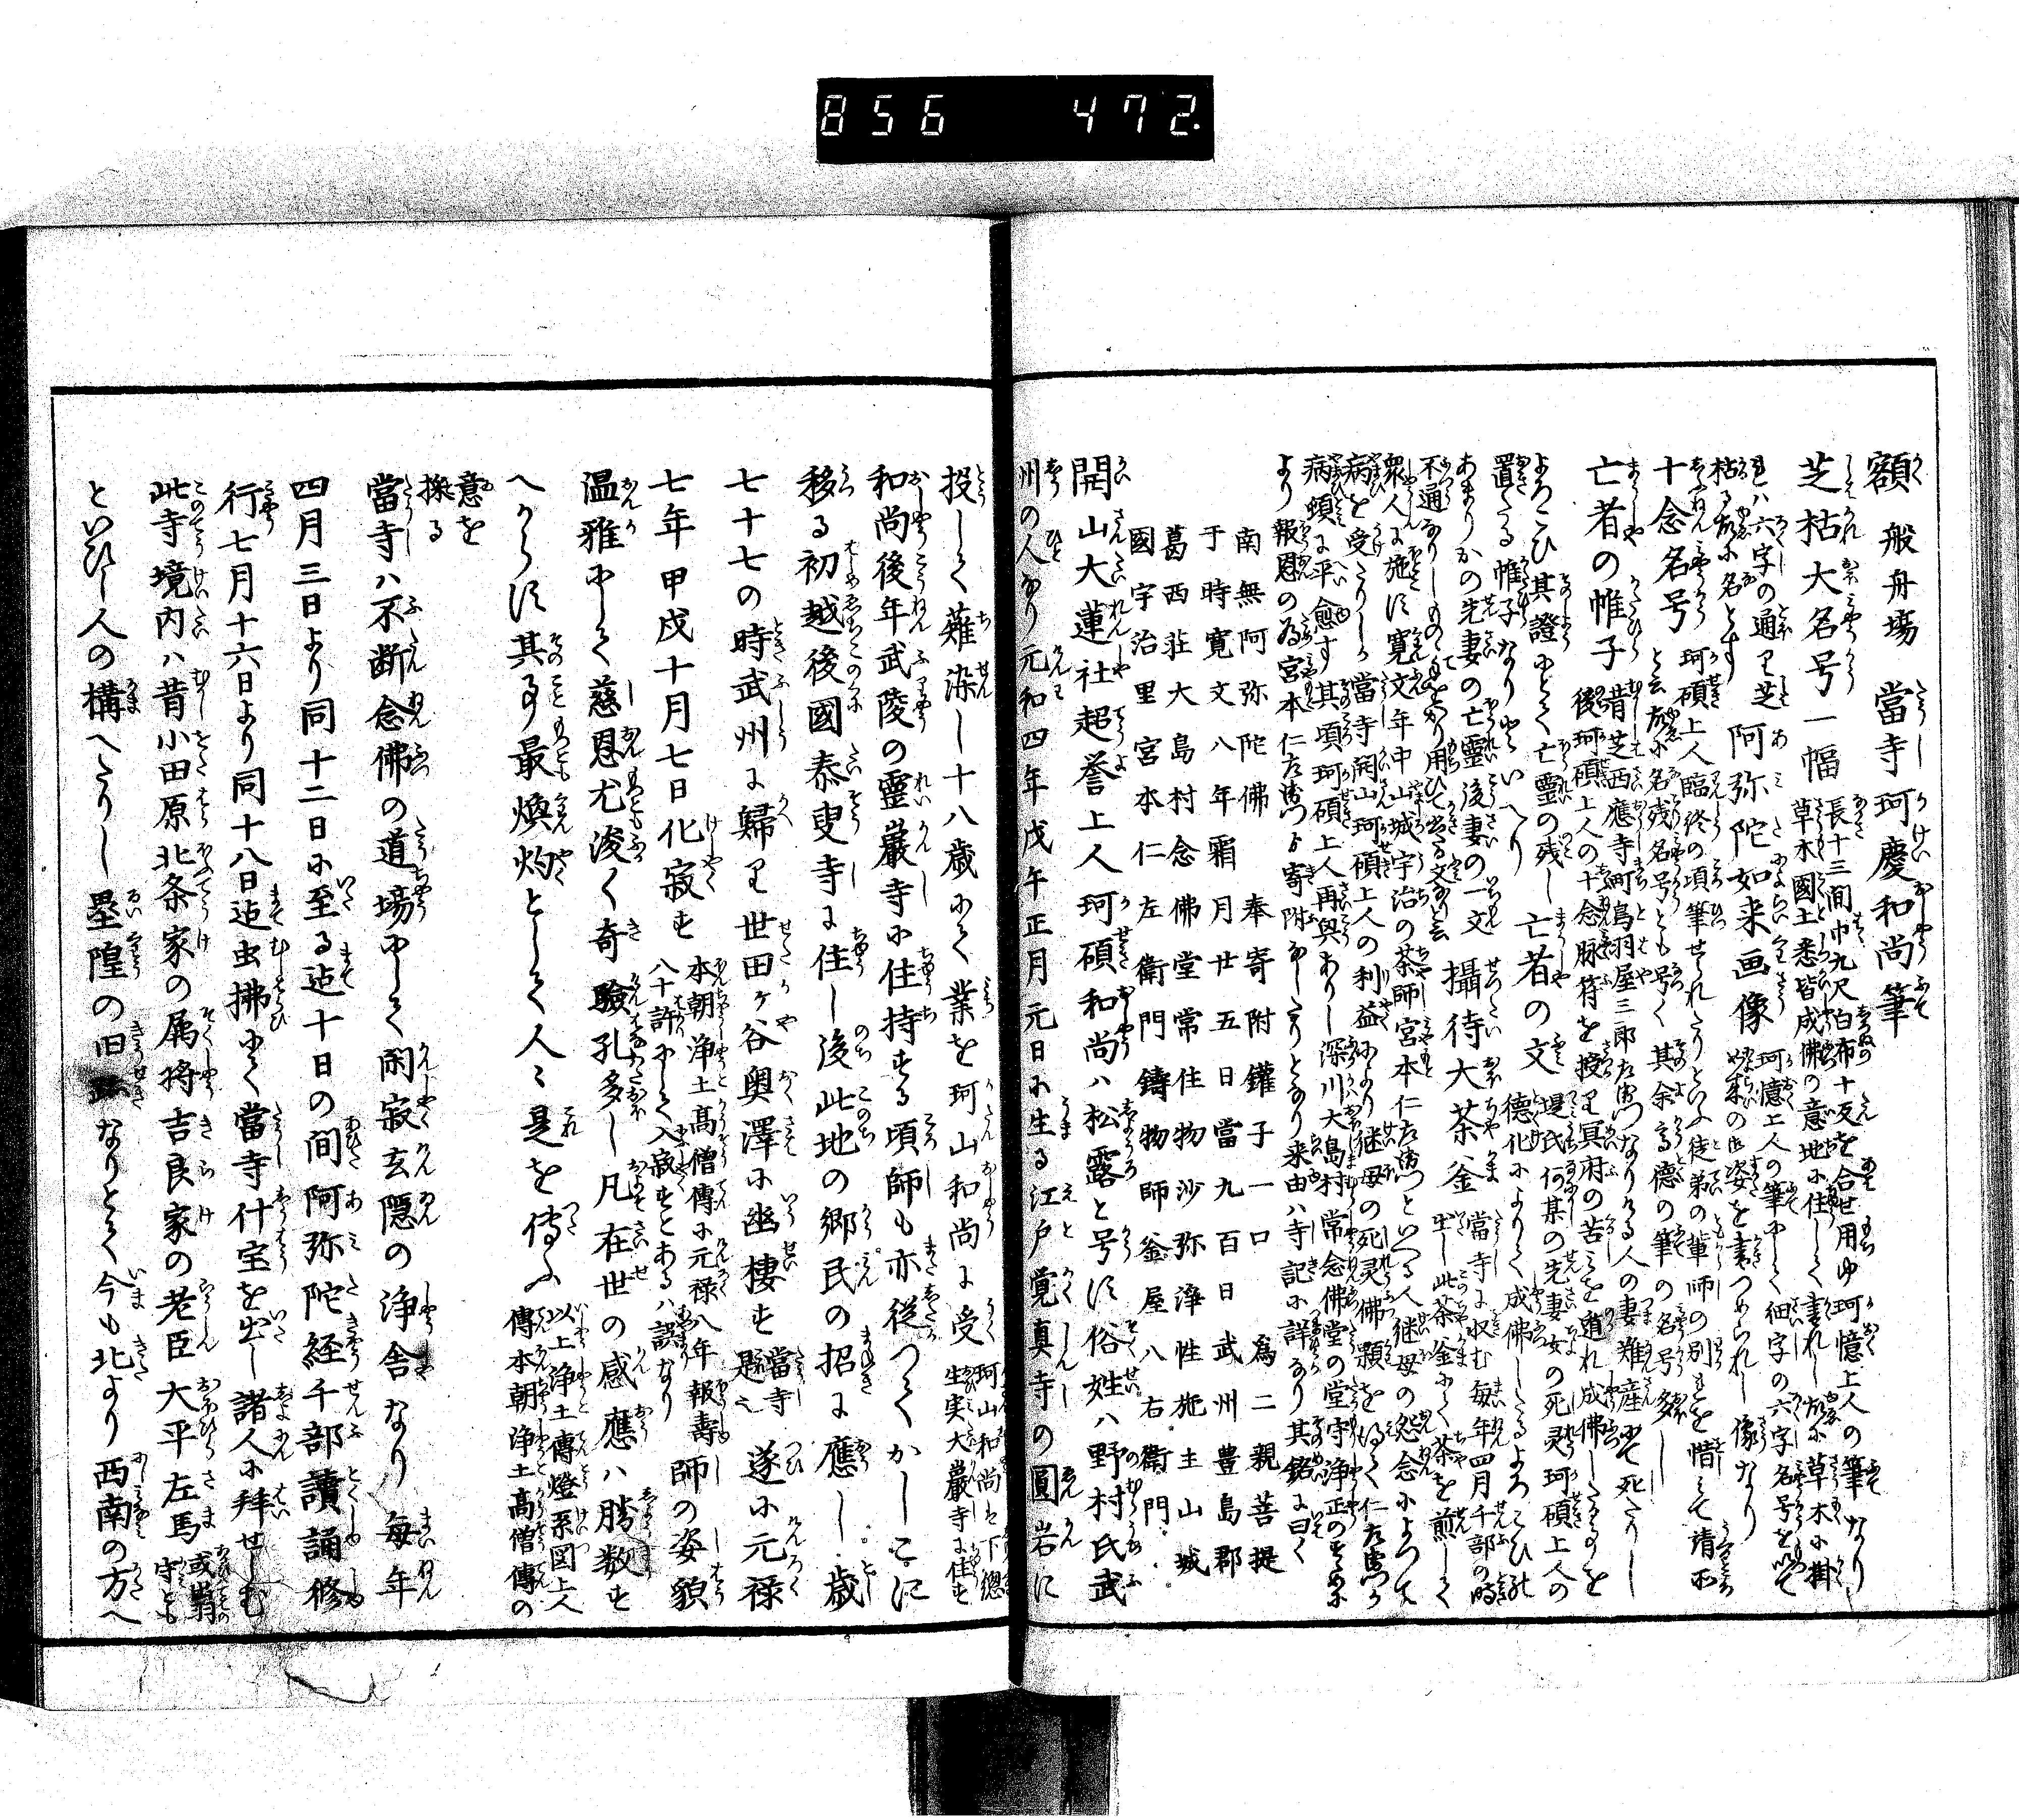 856 472.
額 般舟場 當寺珂慶和尚筆
芝枯大名号一幅 長十三間巾九尺白布十反を合せ用ゆ珂憶上人の筆なり
草木國土悉皆成佛の意地に住して書れし故に草木に掛
れハ六字の通り芝 阿弥陀如来画像 珂憶上人の筆にして細字の六字名号を以て
枯る故に名とす の御姿を書つめられし像なり
十念名号 珂碩上人臨終の頃筆せられたりといふ徒弟の輩師の別れを惜ミて請而
と云故に名残名号とも号く其余高德の筆の名号多し
亡者の帷子 昔芝西應寺町鳥羽屋三郎左衛門なりける人の妻難産にて死たりし
後珂碩上人の十念脉符を授り冥府の苦ミを遁れ成佛したるを
よろこひ其證にとて亡靈の残し 亡者の文 堤氏何某の先妻女の死灵珂碩上人の
置たる帷子なりといへり 德化によりて成佛したるよろこひ
あまりかの先妻の亡靈後妻の一文 攝待大茶釜 當寺に収む毎年四月千部の時
不通なりしの手をかり用ひて 出し此茶釜にて茶を煎して
衆人に施す寛文年中山城宇治の茶師宮本仁左衛門といへる人継母の怨念によつて
病を受たりしか當寺開山珂碩上人の利益により継母の死灵佛願を得て仁左衛門か
病頓に平愈す其頃珂碩上人再興ありし深川大島村常念佛堂の堂守浄正
より報恩の為宮本仁左衛門より寄附なしたりとなり来由ハ寺記に詳なり其銘に曰く
南無阿弥陀佛 奉寄附鑵子一口 為二親菩提
于時寛文八年霜月廿五日當九百日武州豊島郡
葛西莊大島村念佛堂常住物沙弥浄性施主山城
國宇治里宮本仁左衛門鑄物師釜屋八右衛門
開山大蓮社超誉上人珂碩和尚ハ松露と号す俗姓ハ野村氏武
州の人なり元和四年戊午正月元日に生る江戸覚真寺の圓岩に
投して薙染し十八歳にて業を珂山和尚に受 珂山和尚ハ下総
生実大巖寺に住す
和尚後年武陵の靈巖寺に住持する頃師も亦従つてかしこに
移る初越後國泰叟寺に住し後此地の郷民の招に應し歳
七十七の時武州に歸り世田ヶ谷奥澤に幽棲す 當寺是也 遂に元禄
七年甲戌十月七日化寂す 本朝浄土高僧傳に元禄八年報壽
八十許にして入寂すとあるハ誤なり 師の姿貌
温雅にして慈恩尤深く奇驗孔多し凡在世の感應ハ勝数す
へからす其事最煥灼として人々是を傳ふ 以上浄土傳燈系図上人
傳本朝浄土高僧傳の
意を
採る
當寺ハ不断念佛の道場にして閑寂玄隠の浄舎なり毎年
四月三日より同十二日に至る迠十日の间阿弥陀経千部讀誦修
行七月十六日より同十八日迠虫拂にて當寺什宝を出し諸人に拜せしむ
此寺境内ハ昔小田原北条家の属将吉良家の老臣大平左馬 或翁
守とも
といひし人の構へたりし壘隍の旧跡なりとて今も北より西南の方へ